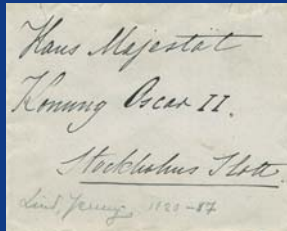 Hans Majestät
Konung Oscar II.
Stockholms Slott.
Lind, Jenny, 1820-87